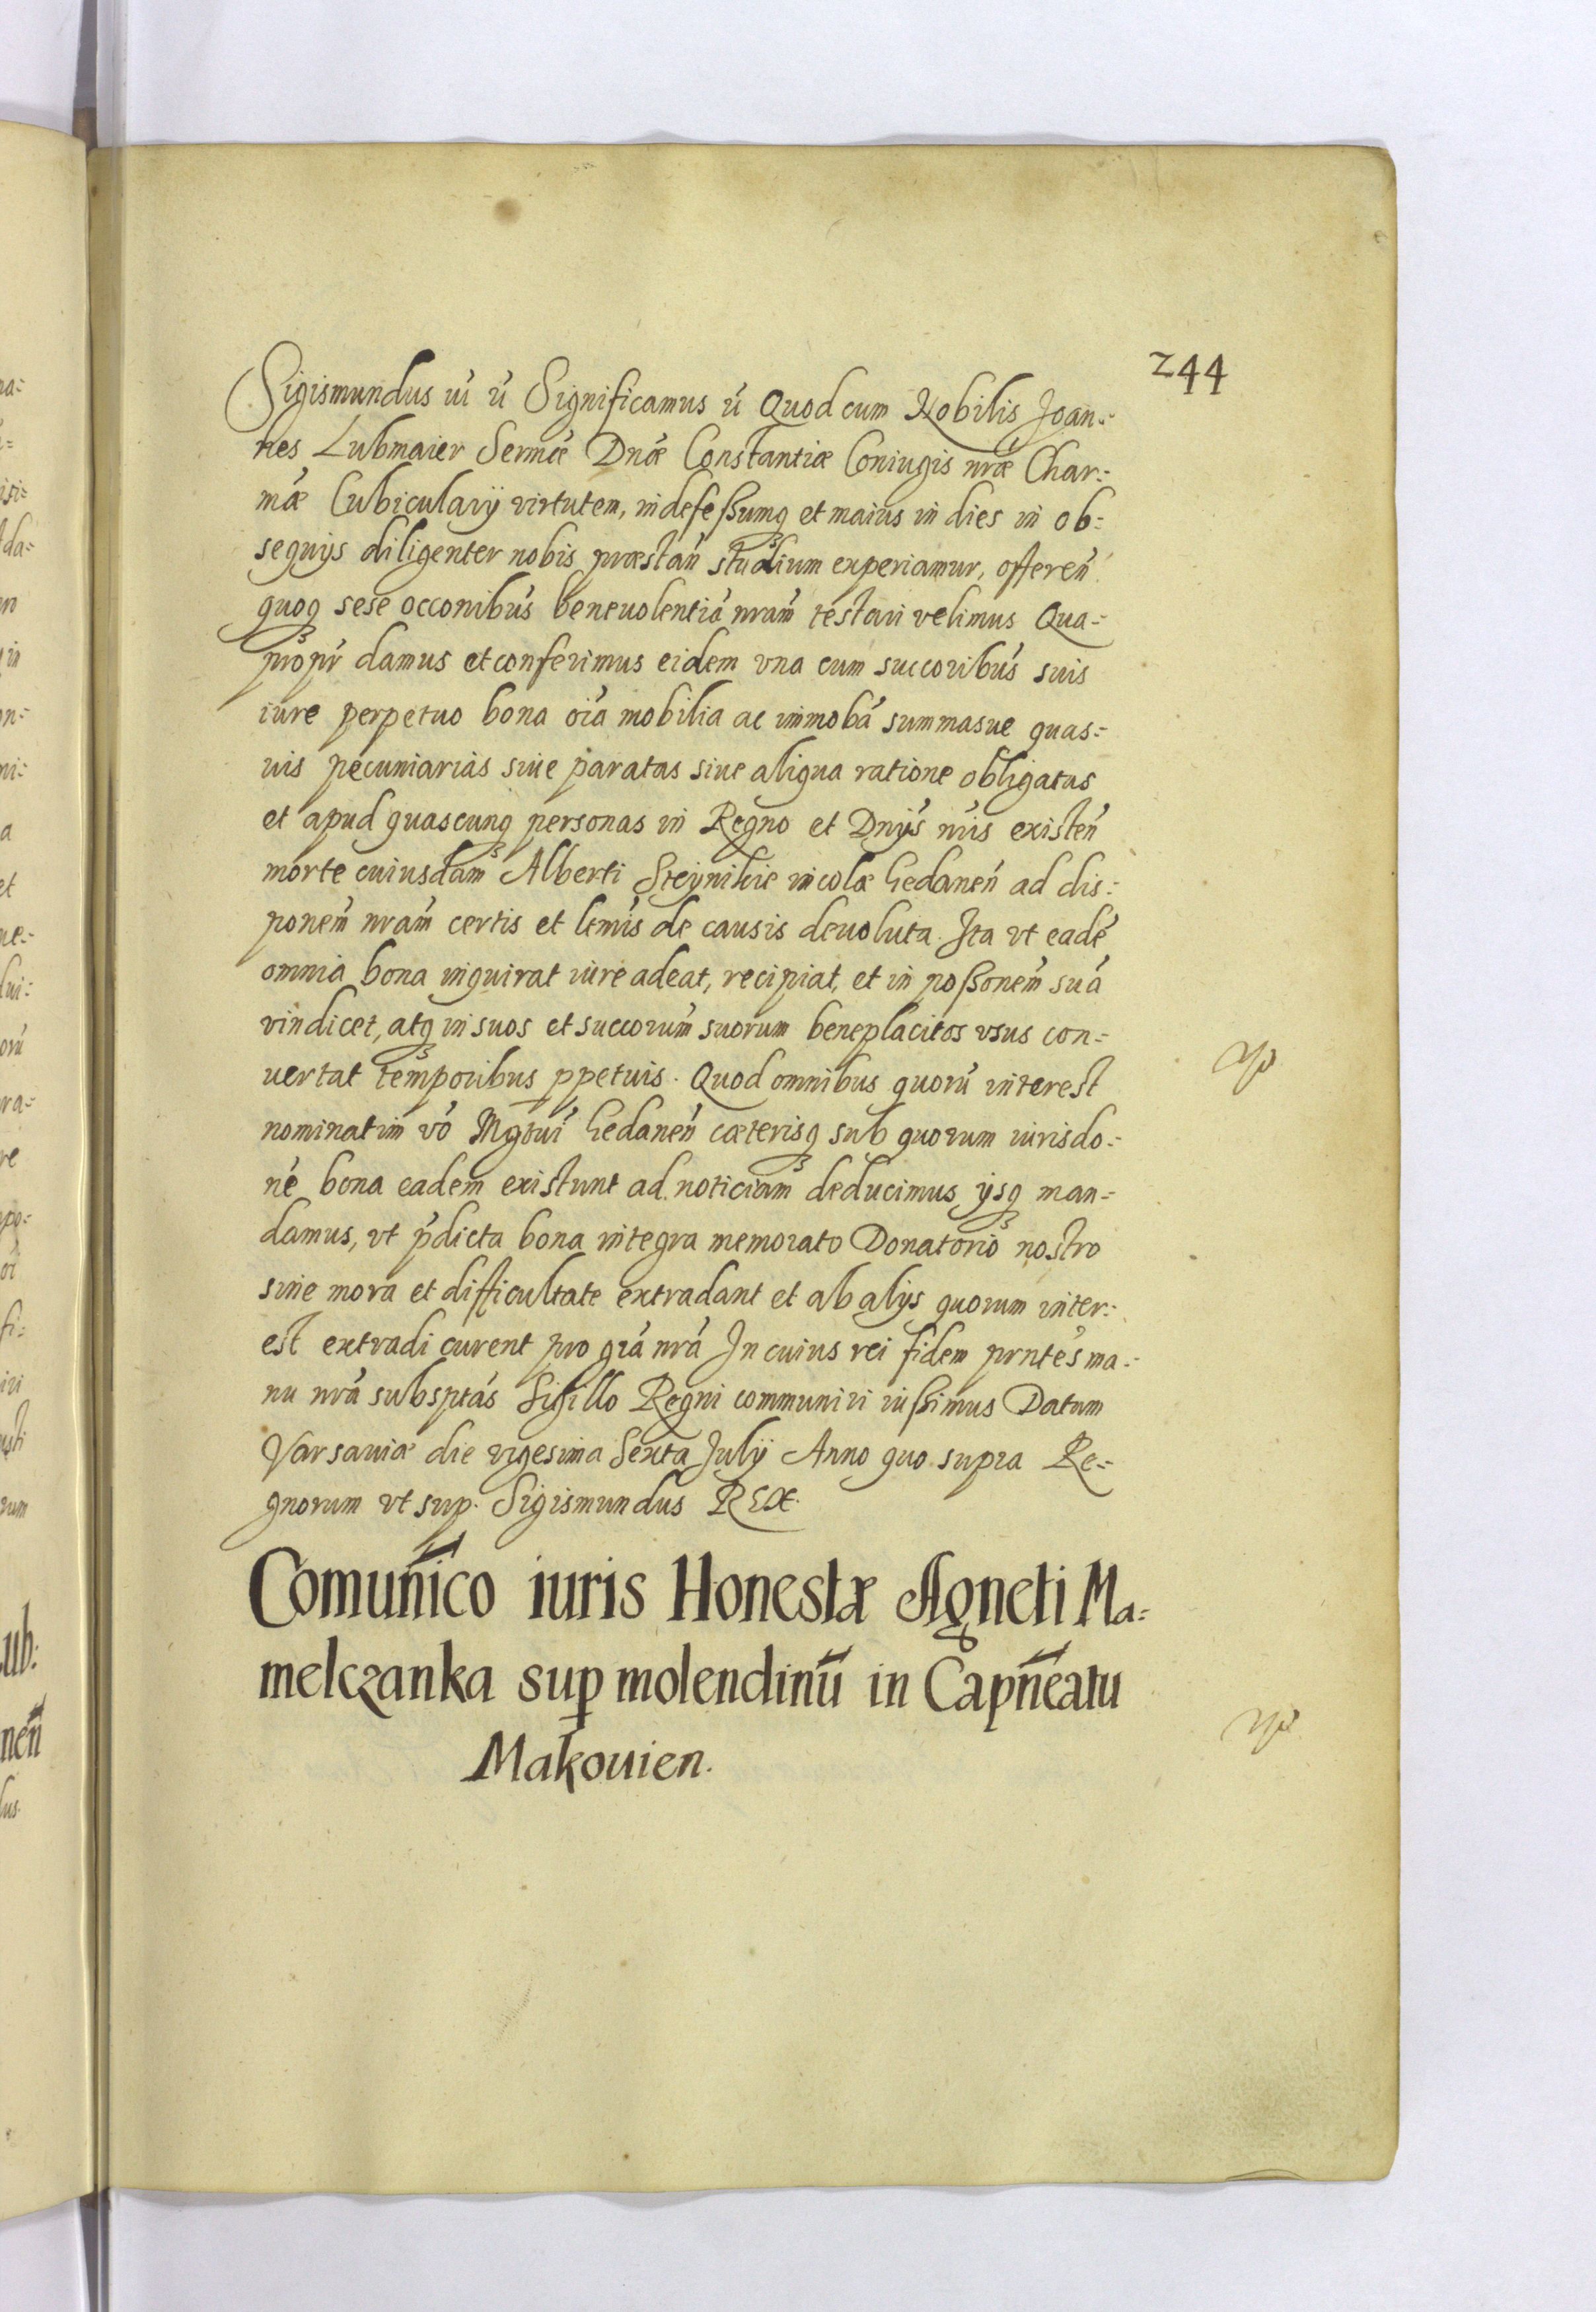 244
Sigismundus iii ú Significamus ú Quod cum Nobilis Joan:
nes Lubmaier Sermæ Dnæ Constantiæ Coniugis nræ Char:
mæ Cubicularij virtutem, indefeßumq et maius in dies in ob:
sequijs diligenter nobis præstań studium experiamur, offereń
quoq sese occonibus beneuolentiá nram testari velimus Qua:
propr damus et conferimus eidem vna cum succoribus suis
iure perpetuo bona oia mobilia ac immoba summasue quas:
uis pecuniarias siue paratas siue aliqua ratione obligatas
et apud quascunq personas in Regno et Dnijs nris existeń
morte cuiusdam Alberti Steynikie incolæ Gedaneń ad dis:
ponem nram certis et lemis de causis deuoluta. Ita vt eadé
omnia bona inquirat iure adeat, recipiat, et in poßonem suá
vindicet, atq in suos et succorum suorum beneplacitos vsus con:
uertat temporibus ppetuis. Quod omnibus quorú interest
nominatim vó Mgrui Gedaneń cæterisq sub quorum iurisdo:
né bona eadem existunt ad noticiam deducimus ijsq man:
damus, vt pdicta bona integra memorato Donatorio nostro
sine mora et difficultate extradant et ab alijs quorum inter:
est extradi curent pro grá nrá In cuius rei fidem prntes ma:
nu nrá subsptas Sigillo Regni communiri iußimus Datum
Varsauiæ die vigesima Sexta Julij Anno quo supra Re:
gnorum vt sup. Sigismundus REX.
Comunico iuris Honestæ Agneti Ma:
melczanka sup molendinū in Capneatu
Makouien.